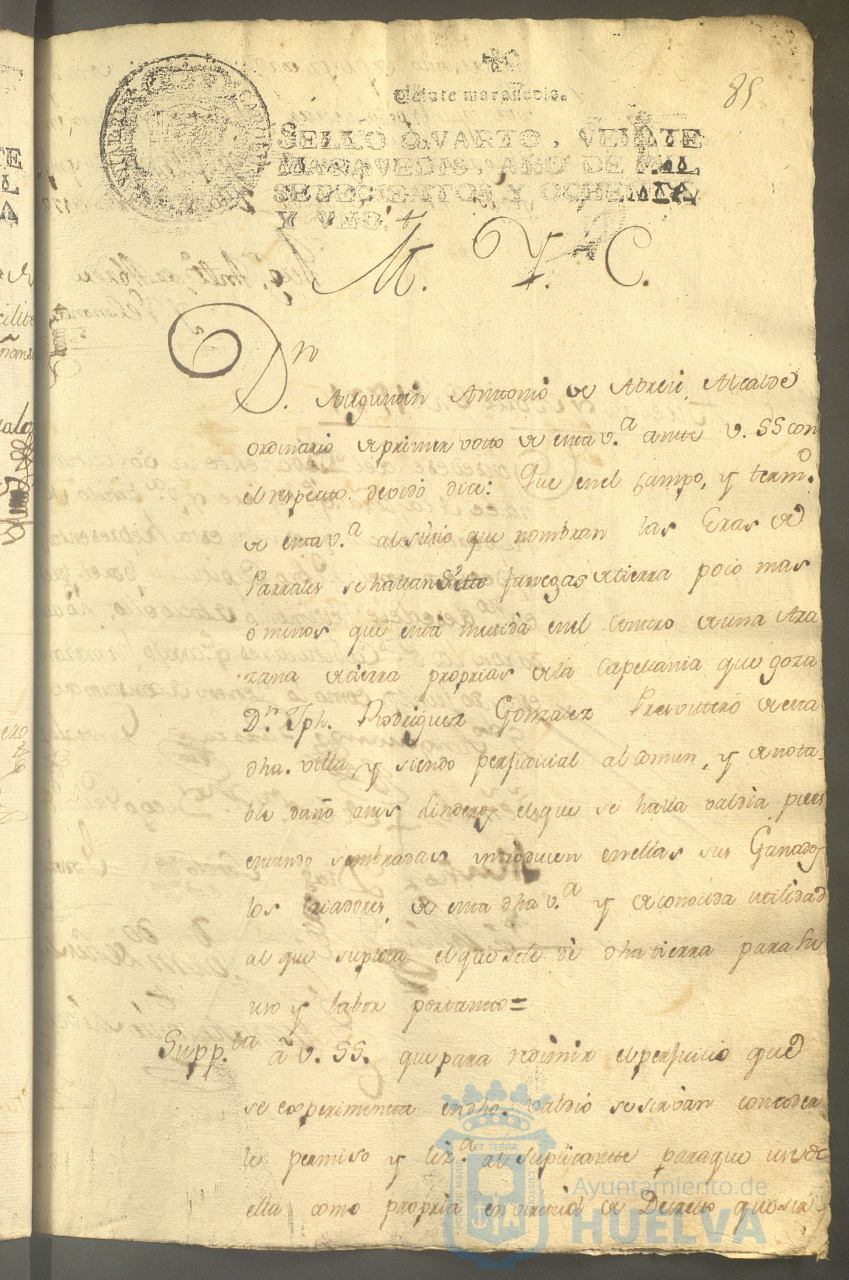 85
Veinte maravedis.
SELLO QVARTO, VEINTE
MARAVEDIS, AÑO DE MIL
SETECIENTOS Y OCHENTA
Y VNO.
M. Y. C.
Dn
D. Augustin Anttonio de Abreu, Alcalde
ordinario de primer votto de esta v.ª antte V. SS con
el respecto devido dice: Que en el Campo, y term.o
de esta v.ª al sitio que nombran las Eras de
Parrales se hallan siette fanegas de tierra poco mas
o menos que está metida en el Centro de una Ara
zana de tierra proprias de la Capellania que goza
D.n Jph. Rodriguez Gonzalez Presvittero de esta
dha. villa, y siendo perjudicial al comun, y de nota
ble daño a los linderos el que se halla valdia pues
estando sembradas introducen en ellas sus Ganados
los criadores de esta dha v.ª y de conocida utilidad
al que suplica el que se le dè dha tierra para su
uso y labor portanto=
Supp.ca à V. SS. que para redimir el perjuicio que
se experimenta en dho. valdio se sirvan conceder
le permiso y liz.ª al suplicante para que use de
ella como propria en virtud de Decreto que sir
Ayuntamiento de
HUELVA